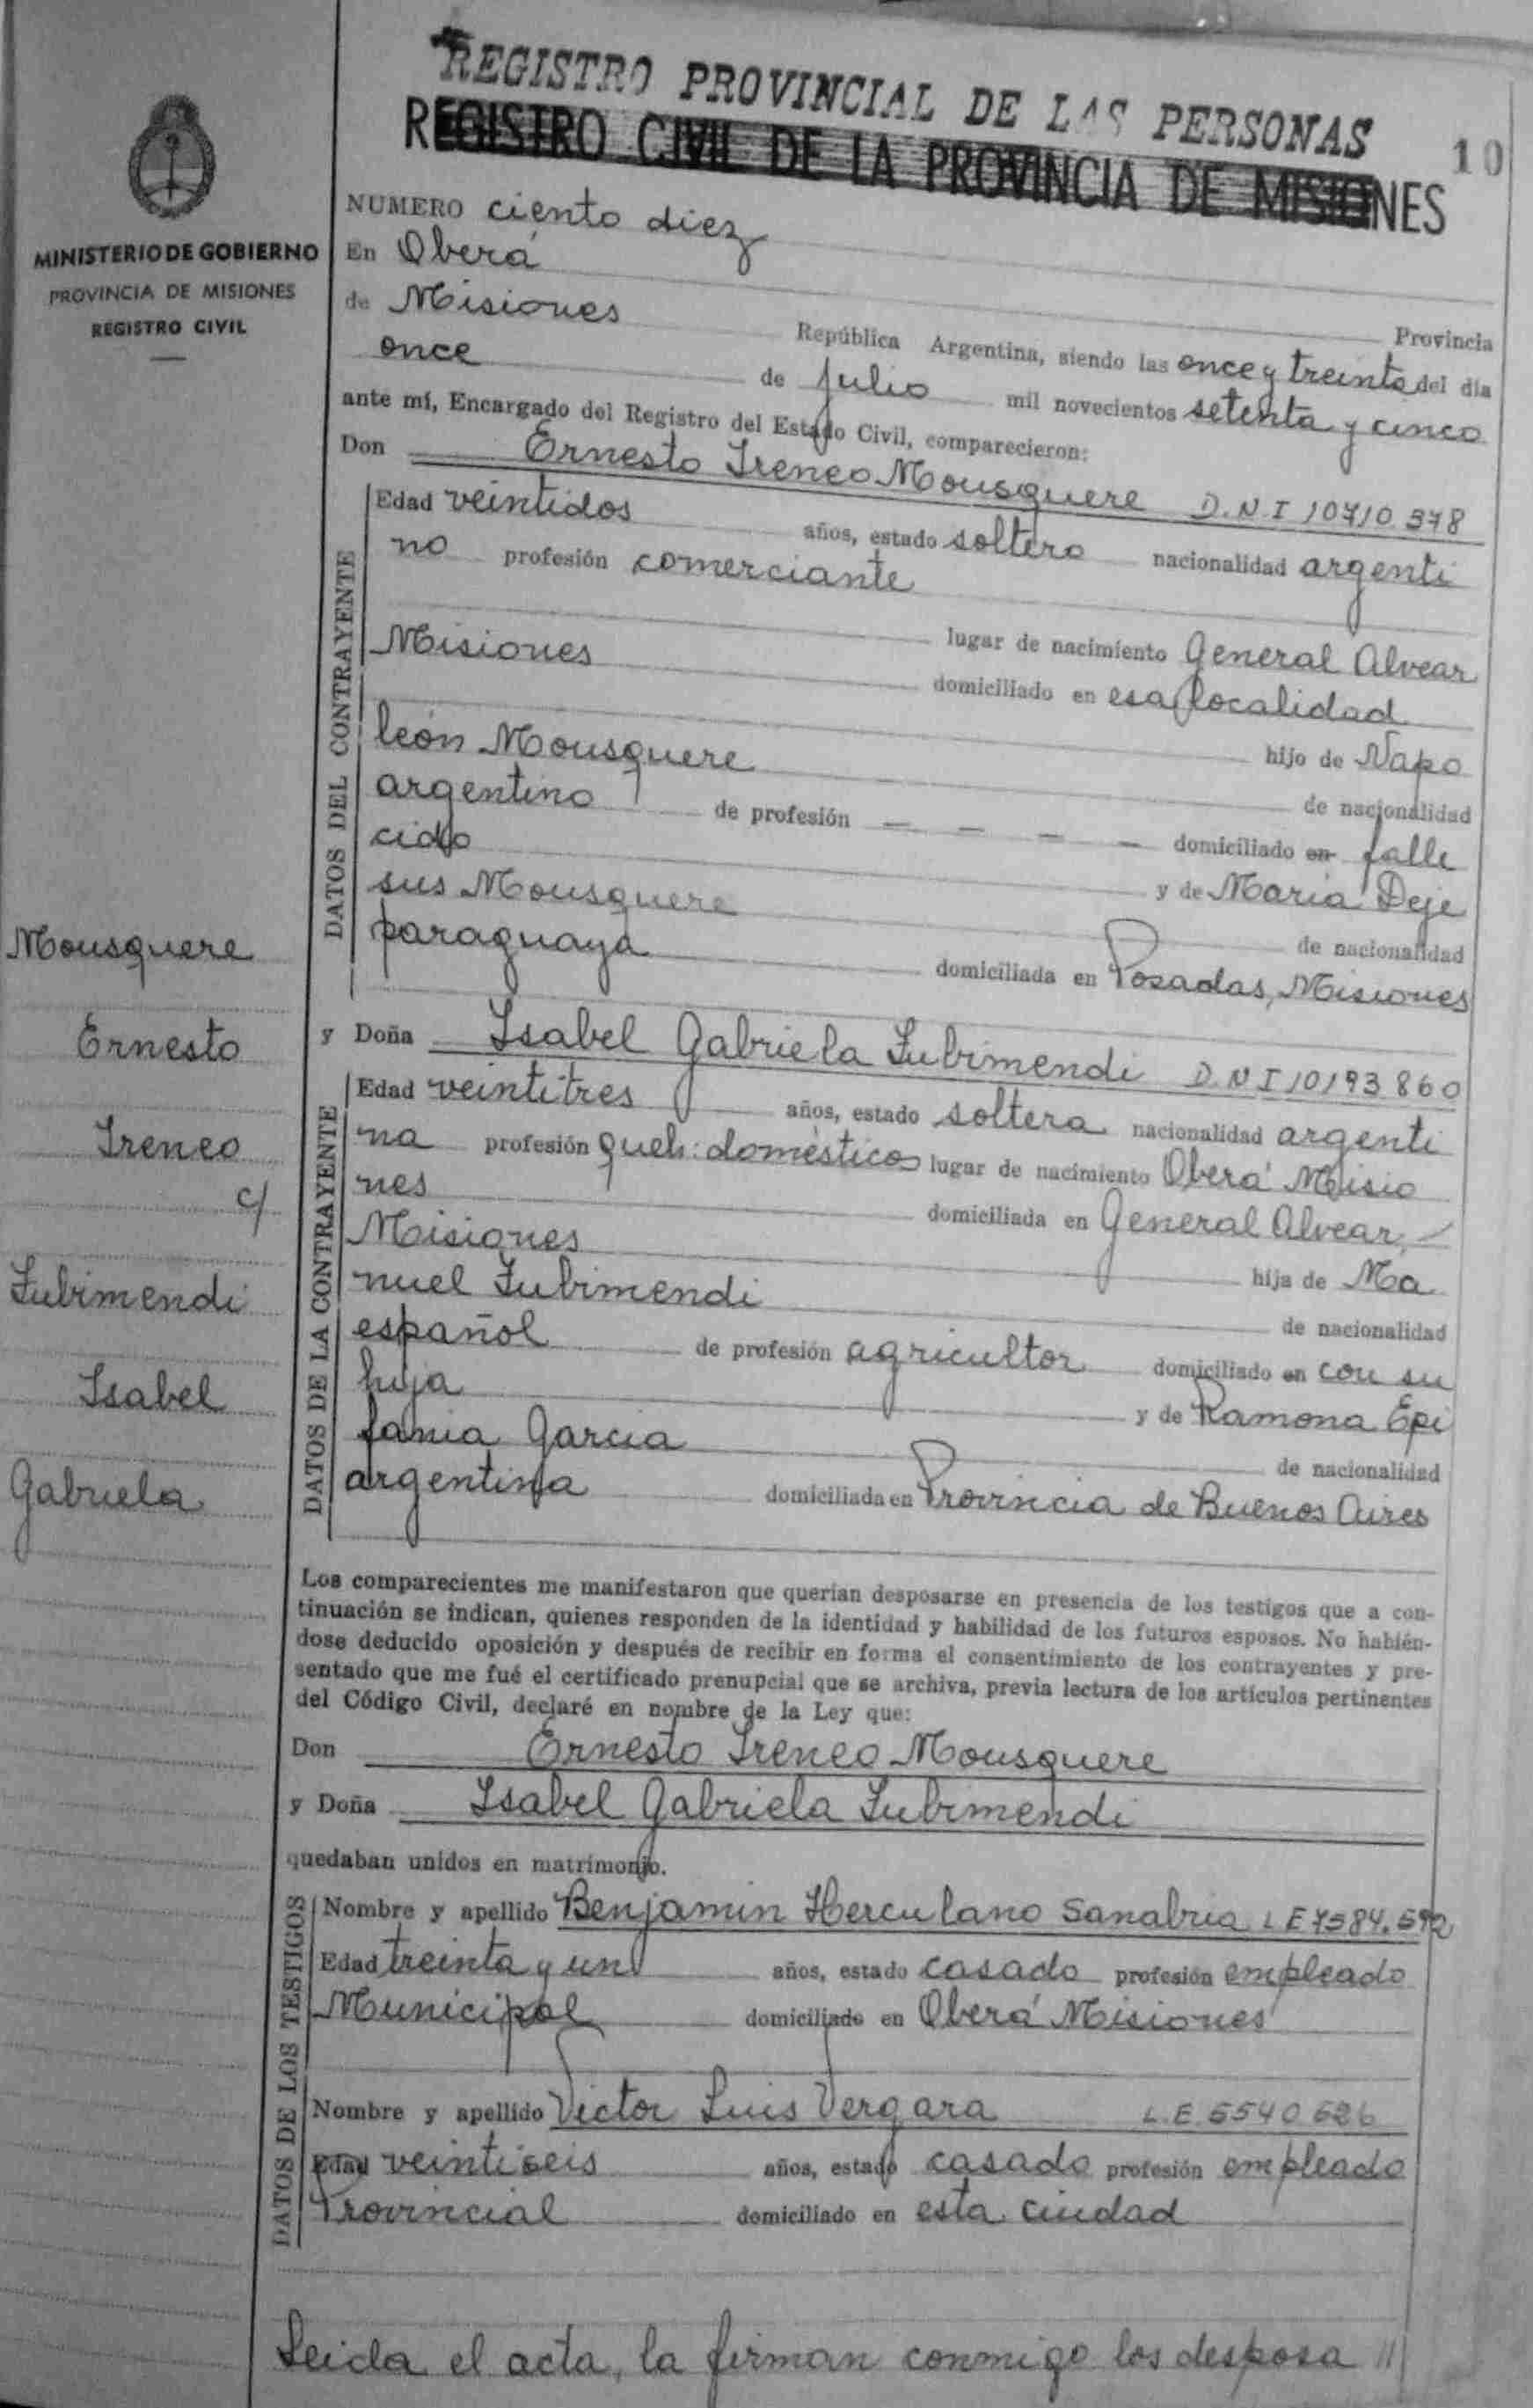 REGISTRO PROVINCIAL DE LAS PERSONAS
REGISTRO CIVIL DE LA PROVINCIA DE MISIONES
10
MINISTERIO DE GOBIERNO
PROVINCIA DE MISIONES
REGISTRO CIVIL
NUMERO ciento diez
En Oberá Provincia
de Misiones República Argentina, siendo las once y treinta del día
once de Julio mil novecientos setenta y cinco
ante mí, Encargado del Registro del Estado Civil, comparecieron:
Don Ernesto Ireneo Mousquere D.N.I 10710.378
DATOS DEL CONTRAYENTE
Edad veintidos años, estado soltero nacionalidad argenti
no profesión comerciante
lugar de nacimiento General Alvear
Misiones domiciliado en esa localidad
hijo de Napo
león Mousquere de nacionalidad
argentino de profesión — — — — domiciliado en falle
cido y de María Deje
sus Mousquere de nacionalidad
paraguaya domiciliada en Posadas, Misiones
y Doña Isabel Gabriela Zubimendi D.N.I 10193860
DATOS DE LA CONTRAYENTE
Edad veintitres años, estado soltera nacionalidad argenti
na profesión queh: domésticos lugar de nacimiento Oberá Misio
nes domiciliada en General Alvear,
Misiones hija de Ma
nuel Zubimendi de nacionalidad
español de profesión agricultor domiciliado en con su
hija y de Ramona Epi
fania Garcia de nacionalidad
argentina domiciliada en Provincia de Buenos Aires
Mousquere
Ernesto
Ireneo
c/
Zubimendi
Isabel
Gabriela
Los comparecientes me manifestaron que querían desposarse en presencia de los testigos que a con-
tinuación se indican, quienes responden de la identidad y habilidad de los futuros esposos. No habién-
dose deducido oposición y después de recibir en forma el consentimiento de los contrayentes y pre-
sentado que me fué el certificado prenupcial que se archiva, previa lectura de los artículos pertinentes
del Código Civil, declaré en nombre de la Ley que:
Don Ernesto Ireneo Mousquere
y Doña Isabel Gabriela Zubimendi
quedaban unidos en matrimonio.
DATOS DE LOS TESTIGOS
Nombre y apellido Benjamin Herculano Sanabria L E 7584.592
Edad treinta y un años, estado casado profesión empleado
Municipal domiciliado en Oberá Misiones
Nombre y apellido Victor Luis Vergara L.E. 5540626
Edad veintiseis años, estado casado profesión empleado
Provincial domiciliado en esta ciudad
Leida el acta, la firman conmigo los desposa //